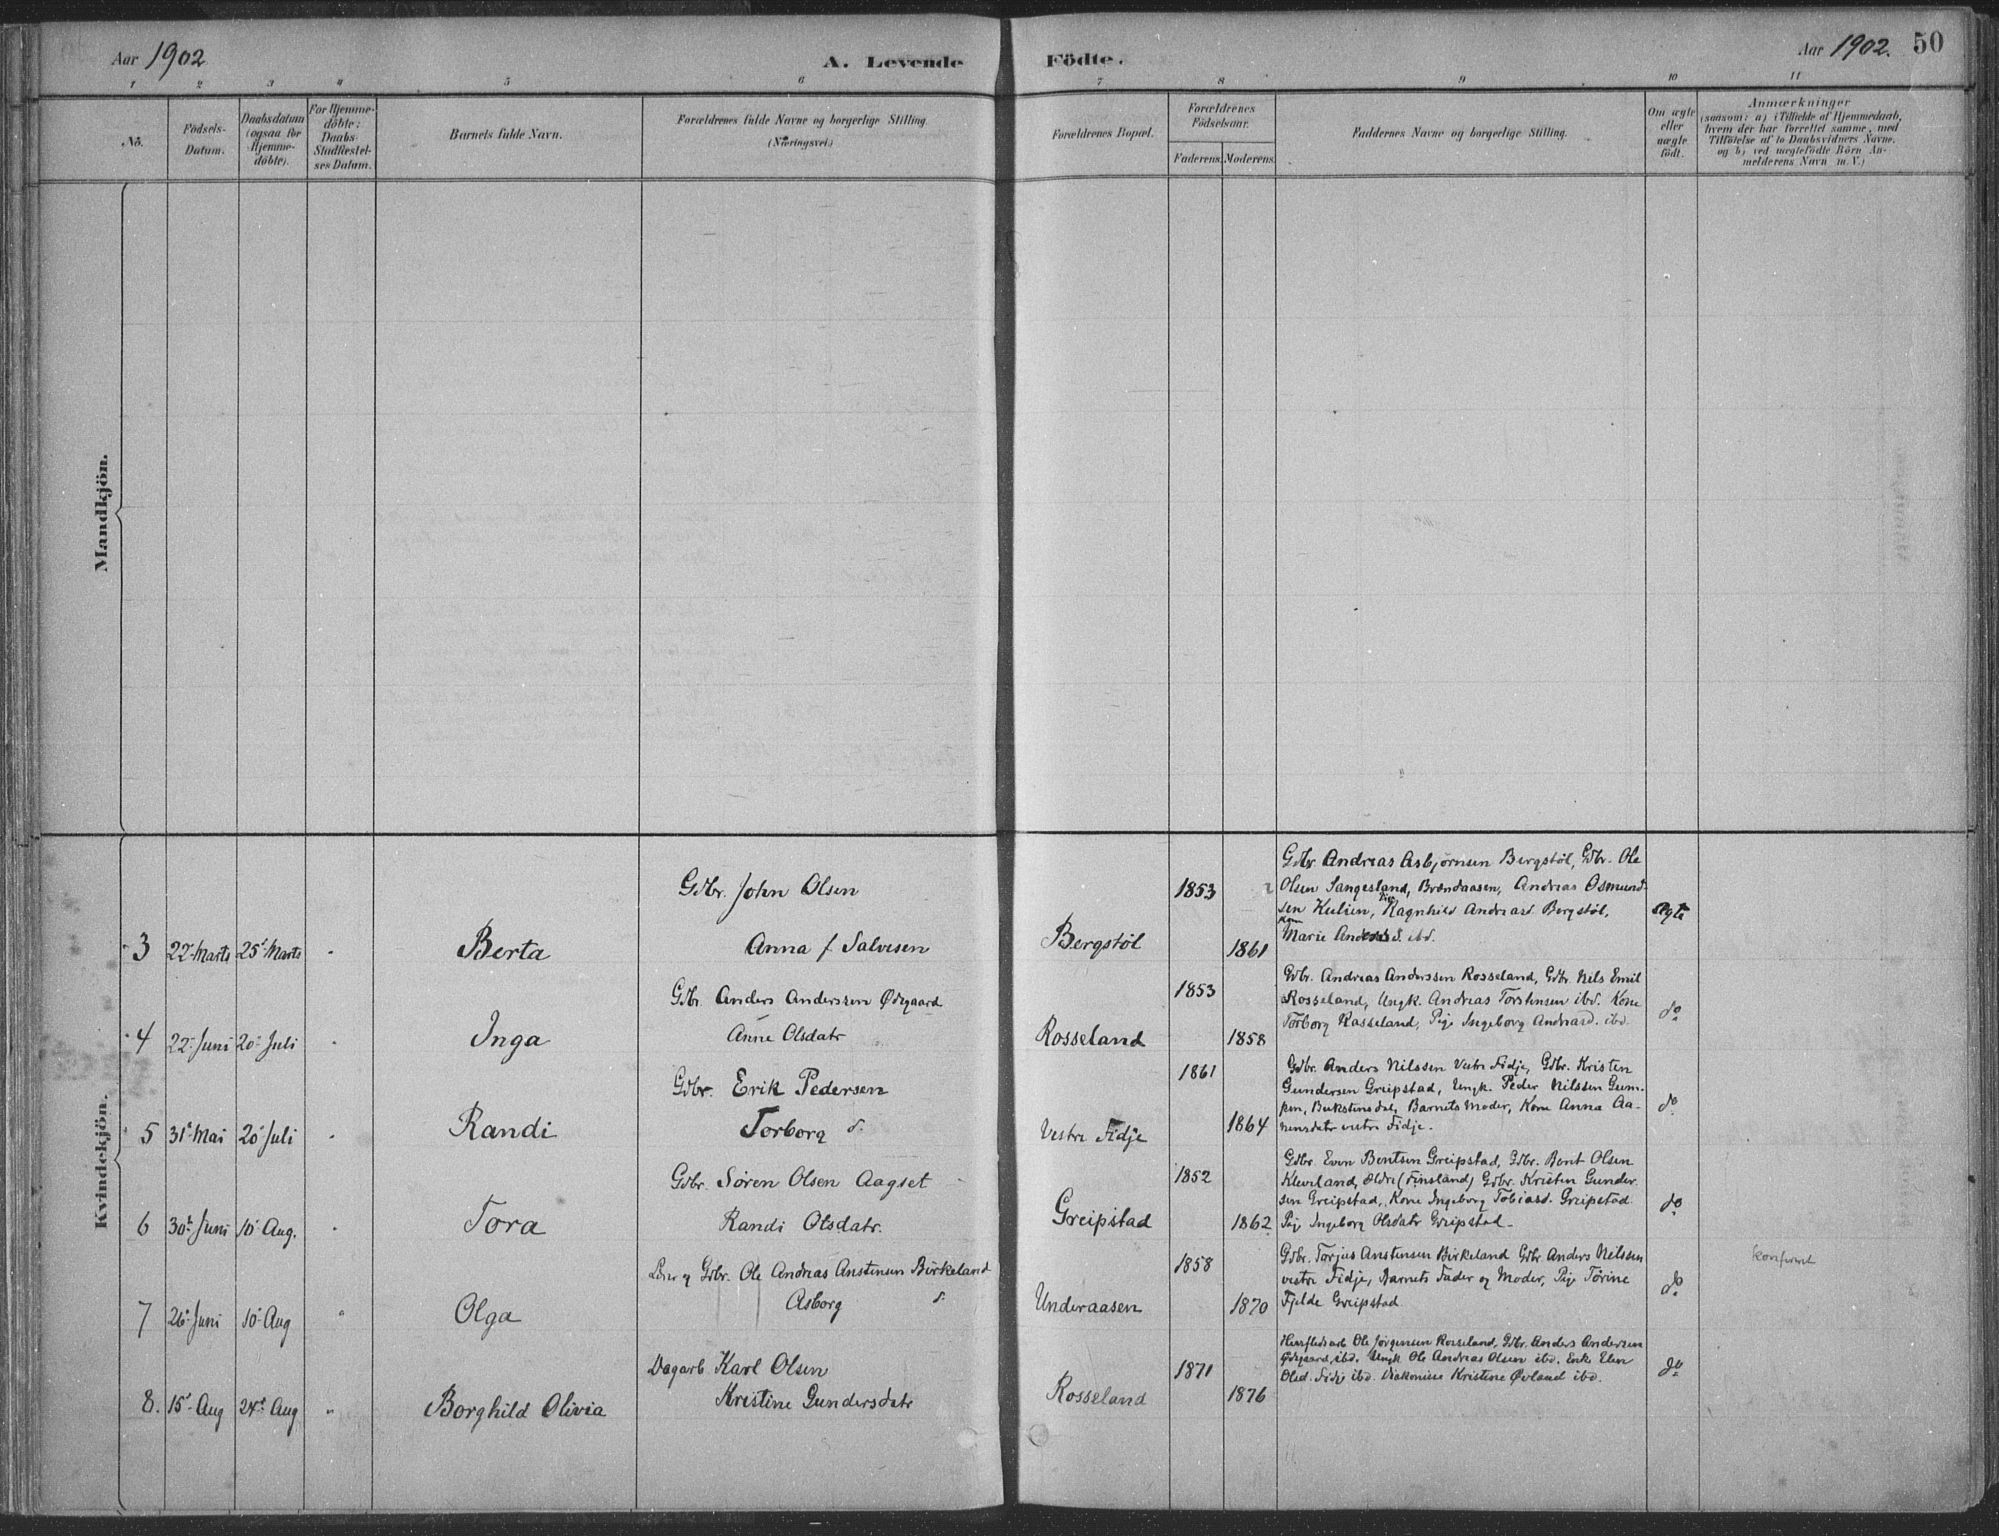 Aar 1902
A. Levende Födte.
Aar 1902. 50
1 2 3 4 5 6 7 8 9 10 11
No.
Födsels-Datum.
Daabsdatum (ogsaa for Hjemmedöbte).
For Hjemmedöbte: Daabs-Stadfæstelses Datum.
Barnets fulde Navn.
Forældrenes fulde Navne og borgerlige Stilling (Næringsvei.)
Forældrenes Bopæl.
Forældrenes Födselsaar.
Faderens. Moderens.
Faddernes Navne og borgerlige Stilling.
Om ægte eller uægte födt.
Anmærkninger (saasom: a) i Tilfælde af Hjemmedaab, hvem der har forrettet samme, med Tilföielse af to Daabsvidners Navne, og b) ved uægtefödte Börn Anmelderens Navn m. V.)
Mandkjön.
Kvindekjön.
3 22 Marts 25 Marts " Berta
Gdbr. John Olsen
Anna f Salvesen
Bergstøl 1853 1861
Gdbr Andreas Asbjørnsen Bergstøl, Gdbr. Ole
Olsen Sangesland, Brændaasen, Andreas Osmund-
sen Kulien, Pige Ragnhild Andreasd Bergstøl,
Kone Marie Andersd. ibd.
ægte
4 22 Juni 20 Juli " Inga
Gdbr. Anders Anderssen Ødegaard
Anne Olsdatr
Rosseland 1853 1858
Gdbr. Andreas Anderssen Rosseland, Gdbr Nils Emil
Rosseland, Ungk. Andreas Torstensen ibd. Kone
Torborg Rosseland, Pige Ingeborg Andreasd. ibd.
do
5 31 Mai 20 Juli " Randi
Gdbr. Erik Pedersen
Torborg d.
Vestre Fidje 1861 1864
Gdbr. Anders Nilssen Vestre Fidje, Gdbr. Kristen
Gundersen Greipstad, Ungk. Peder Nilssen Gum-
pen, Bukstensdal, Barnets Moder, Kone Anna Aa-
nensdatr vestre Fidje.
do
6 30 Juni 10 Aug. " Tora
Gdbr. Søren Olsen Aagset
Randi Olsdatr.
Greipstad 1852 1862
Gdbr. Even Bentsen Greipstad, Gdbr. Bent Olsen
Kleveland, Øldre (Finsland) Gdbr. Kristen Gunder-
sen Greipstad, Kone Ingeborg Tobiasd. Greipstad
Pige Ingeborg Olsdatr Greipstad.
do
7 26 Juni 10 Aug " Olga
Gdbr. Ole Andreas Anstensen Birkeland
Asborg d.
Underaasen 1858 1870
Gdbr. Torjus Anstensen Birkeland Gdbr Anders Nilssen
vestre Fidje, Barnets Fader og Moder, Pige Tørine
Fjelde Greipstad
do
konfirmt
8. 15 Aug 24 Aug " Borghild Olivia
Dagarb. Karl Olsen
Kristine Gundersdatr
Rosseland 1871 1876
Ole Jørgensen Rosseland, Gdbr. Anders Andersen
Ødegaard, ibd. Ungk Ole Andreas Olsen ibd. Enke Elen
Olsd. Fidje ibd. Diakonisse Kristine Øvland ibd.
do